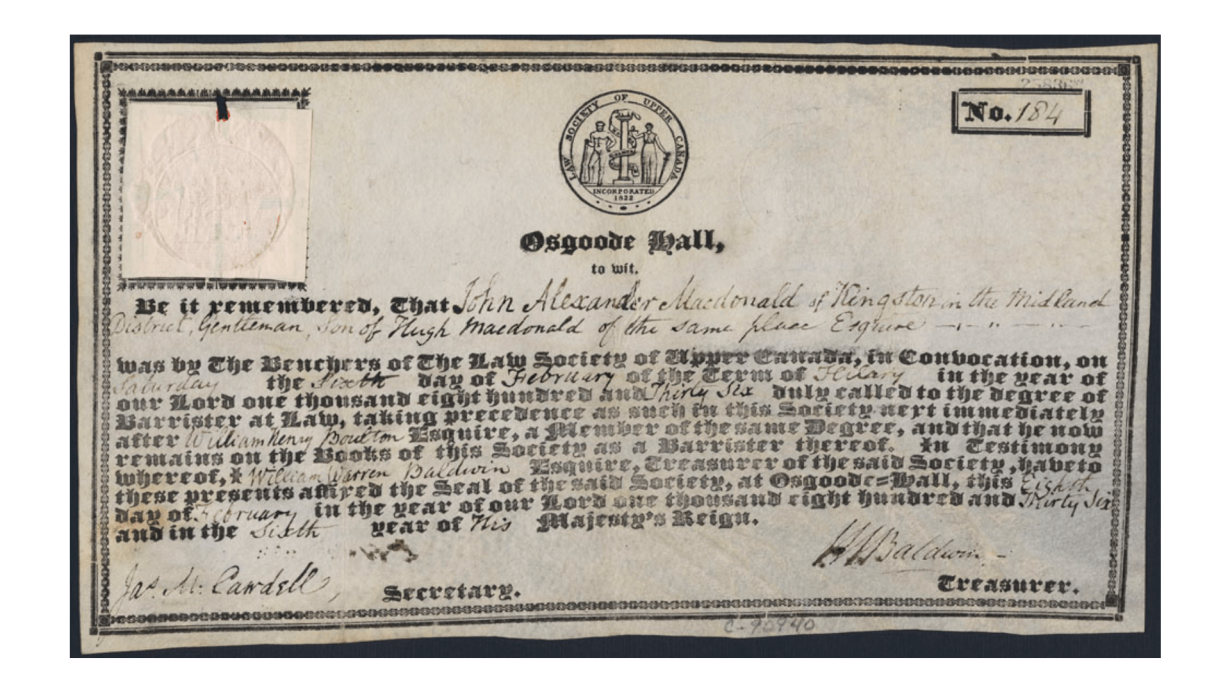 25836
No. 184
LAW SOCIETY OF UPPER CANADA
INCORPORATED
1822
Osgoode Hall,
to wit.
Be it remembered, That John Alexander Macdonald of Kingston in the Midland
District, Gentleman, Son of Hugh Macdonald of the same place Esquire
was by The Benchers of The Law Society of Upper Canada, in Convocation, on
Saturday the Sixth day of February of the Term of Hilary in the year of
our Lord one thousand eight hundred and Thirty Six duly called to the degree of
Barrister at Law, taking precedence as such in this Society next immediately
after William Henry Boulton Esquire, a Member of the same Degree, and that he now
remains on the Books of this Society as a Barrister thereof. In Testimony
whereof, I William Warren Baldwin Esquire, Treasurer of the said Society, have to
these presents affixed the Seal of the said Society, at Osgoode=Hall, this Eighth
day of February in the year of our Lord one thousand eight hundred and Thirty Six
and in the Sixth year of His Majesty's Reign.
Jas. M. Cawdell, Secretary.
WWBaldwin
Treasurer.
C-90940